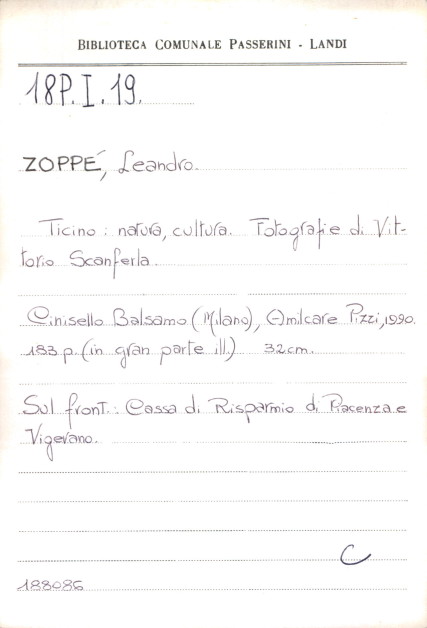 BIBLIOTECA COMUNALE PASSERINI - LANDI
18P.I.19.
ZOPPÉ, Leandro.
Ticino: natura, cultura. Fotografie di Vit-
torio Scanferla.
Cinisello Balsamo (Milano), Amilcare Pizzi, 1990.
183 p. (in gran parte ill.) 32cm.
Sul front.: Cassa di Risparmio di Piacenza e
Vigevano.
C
188086